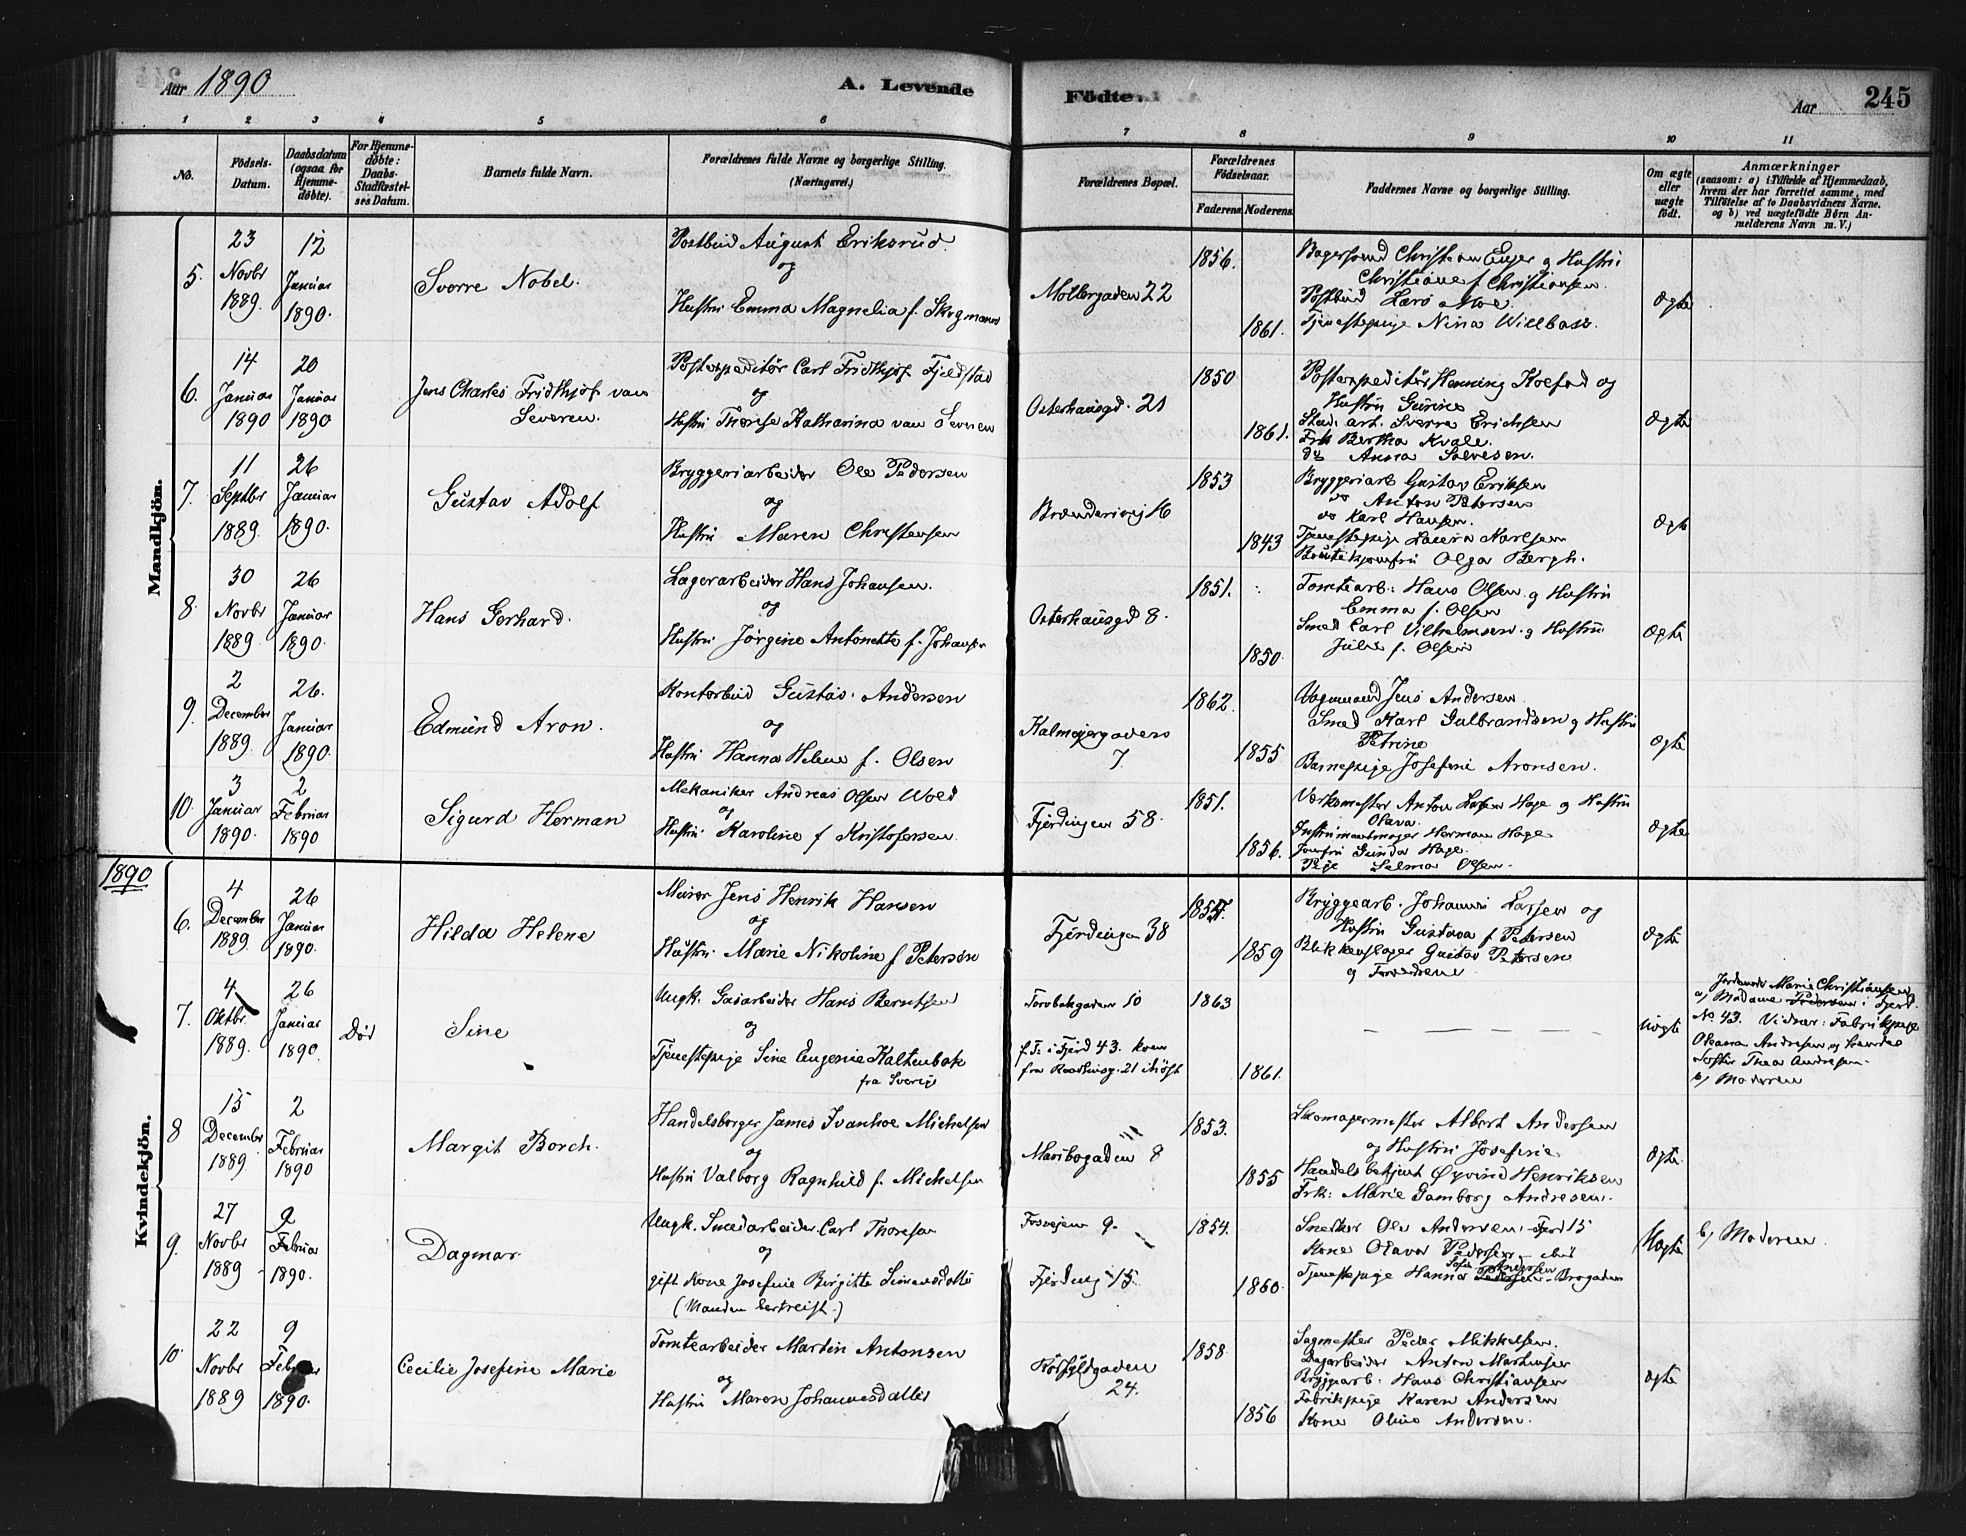 Aar 1890
A. Levende
Födte.
Aar
245
1 2 3 4 5 6 7 8 9 10 11
No.
Födsels-
Datum.
Daabsdatum
(ogsaa for
Hjemme-
døbte).
For Hjemme-
døbte:
Daabs-
Stadfæstel-
ses Datum.
Barnets fulde Navn.
Forældrenes fulde Navne og borgerlige Stilling.
(Næringsvei.)
Forældrenes Bopæl.
Forældrenes
Födselsaar.
Faderens. Moderens.
Faddernes Navne og borgerlige Stilling.
Om ægte
eller
uægte
født.
Anmærkninger
(saasom: a) i Tilfælde af Hjemmedaab,
hvem der har forrettet samme, med
Tilföielse af to Daabsvidners Navne.
og b) ved uægtefödte Børn An-
melderens Navn m. V.)
Mandkjön.
5.
23
Novbr
1889.
12
Januar
1890.
Sverre Nobel.
Postbud August Eriksrud
og
Hustru Emma Magnelia f. Skogmann
Møllergaden 22
1856.
1861.
Christian Enger og Hustru
Christiane f. Christiansen.
Postbud Lars Moe.
Tjenestepige Nina Willbass.
Ægte
6.
14
Januar
1890
20
Januar
1890
Jens Charles Fridthjof van
Severen.
Postexpeditør Carl Fridthjof Fjeldstad
og
Hustru Therese Katharina van Severen
Osterhausgd. 21
1850
1861.
Postexpeditør Henning Koefod og
Hustru Gurine
Stud. art. Sverre Erichsen
Frk Bertha Kvale.
do Anna Salvesen.
Ægte
7.
11
Septbr
1889.
26
Januar
1890.
Gustav Adolf
Bryggeriarbeider Ole Pedersen
og
Hustru Maren Christensen
16
1853
1843
Bryggeriarb Gustav Eriksen
do Anton Petersen
do Karl Hansen.
Tjenestepige Laura Karlsen
Olga Bergh.
Ægte
8.
30
Novbr
1889.
26
Januar
1890.
Hans Gerhard.
Lagerarbeider Hans Johansen.
og
Hustru Jørgine Antonette f. Johansen
Osterhausgd 8.
1851.
1850.
Tomtearb: Hans Olsen og Hustru
Emma f. Olsen
Smed Carl Vilhelmsen og Hustru
Julie f. Olsen
Ægte
9.
2
December
1889.
26.
Januar
1890.
Edmund Aron.
Kontorbud Gustav Andersen
og
Hustru Hanna Helene f. Olsen
Kalmeyergaden
7.
1862.
1855
Vognmand Jens Andersen.
Smed Karl Gulbrandsen og Hustru
Petrine
Barnepige Josefine Aronsen.
Ægte
10.
3
Januar
1890.
2
Februar
1890
Sigurd Herman
Mekaniker Andreas Olsen Wold
og
Hustru Karoline f Kristofersen.
Fjerdingen 58.
1851.
1856.
Værksmester Anton Larsen Hage og Hustru
Olava.
Instrumentmager Herman Hage
Jomfru Gunda Hage.
Pige Selma Olsen.
Ægte
1890
Kvindekjön.
6.
4
December
1889.
26
Januar
1890.
Hilda Helene
Murer Jens Henrik Hansen
og
Hustru Marie Nikoline f Petersen
Fjerdingen 38
1859
Bryggearb. Johannes Larsen og
Hustru Gustava f Petersen
Blikkenslager Gustav Petersen
og Forældrene
Ægte
7.
4
Oktbr.
1889.
26
Januar
1890.
Død
Sine
Ungk. Gasarbeider Hans Berntsen
og
Tjenestepige Sine Eugenie Kaltenbak
fra Sverig
Torvbakgaden 10
f. T. i Fjerd 43. kom
fra Raadhusg. 21 i Høst
1863
1861.
Uægte
Jordemor Marie Christiansen
a) Madame Pedersen i Fjerd.
No 43. Vidner: Fabrikpige
Oleana Andresen og hendes
Søster Thea Andresen.
b) Moderen
8
15
December
1889.
2
Februar
1890
Margit Borch.
Handelsborger James Ivanhoe Michelsen
og
Hustru Valborg Ragnhild f. Michelsen
Maribogaden 8
1853.
1855
Skomagermester Albert Andersen
og Hustru Josefine
Handelsbetjent Øyvind Henriksen
Frk: Marie Gamborg Andresen.
Ægte.
9.
27
Novbr
1889
9
Februar
1890.
Dagmar.
Ungk. Smedarbeider Carl Thoresen
og
gift Kone Josefine Birgitte Simensdatter
(Manden bortreist.)
Fosveien 9.
Fjerding 15.
1854.
1860.
Snedker Ole Andersen. Fjerd 15
Kone Olava Pedersen
Sofie Andersen
Tjenestepige Hanna Pedersen. Brogaden
Uægte
b) Moderen.
10
22
Novbr
1889
9
Februar
1890.
Cecilie Josefine Marie
Tomtearbeider Martin Antonsen
og
Hustru Maren Johannesdatter
24.
1858
1856
Sagmester Peder Mikkelsen.
Dagarbeider Anton Martinsen
Bryggearb: Hans Christiansen
Fabrikpige Karen Andersen
Kone Oline Andersen.
Ægte